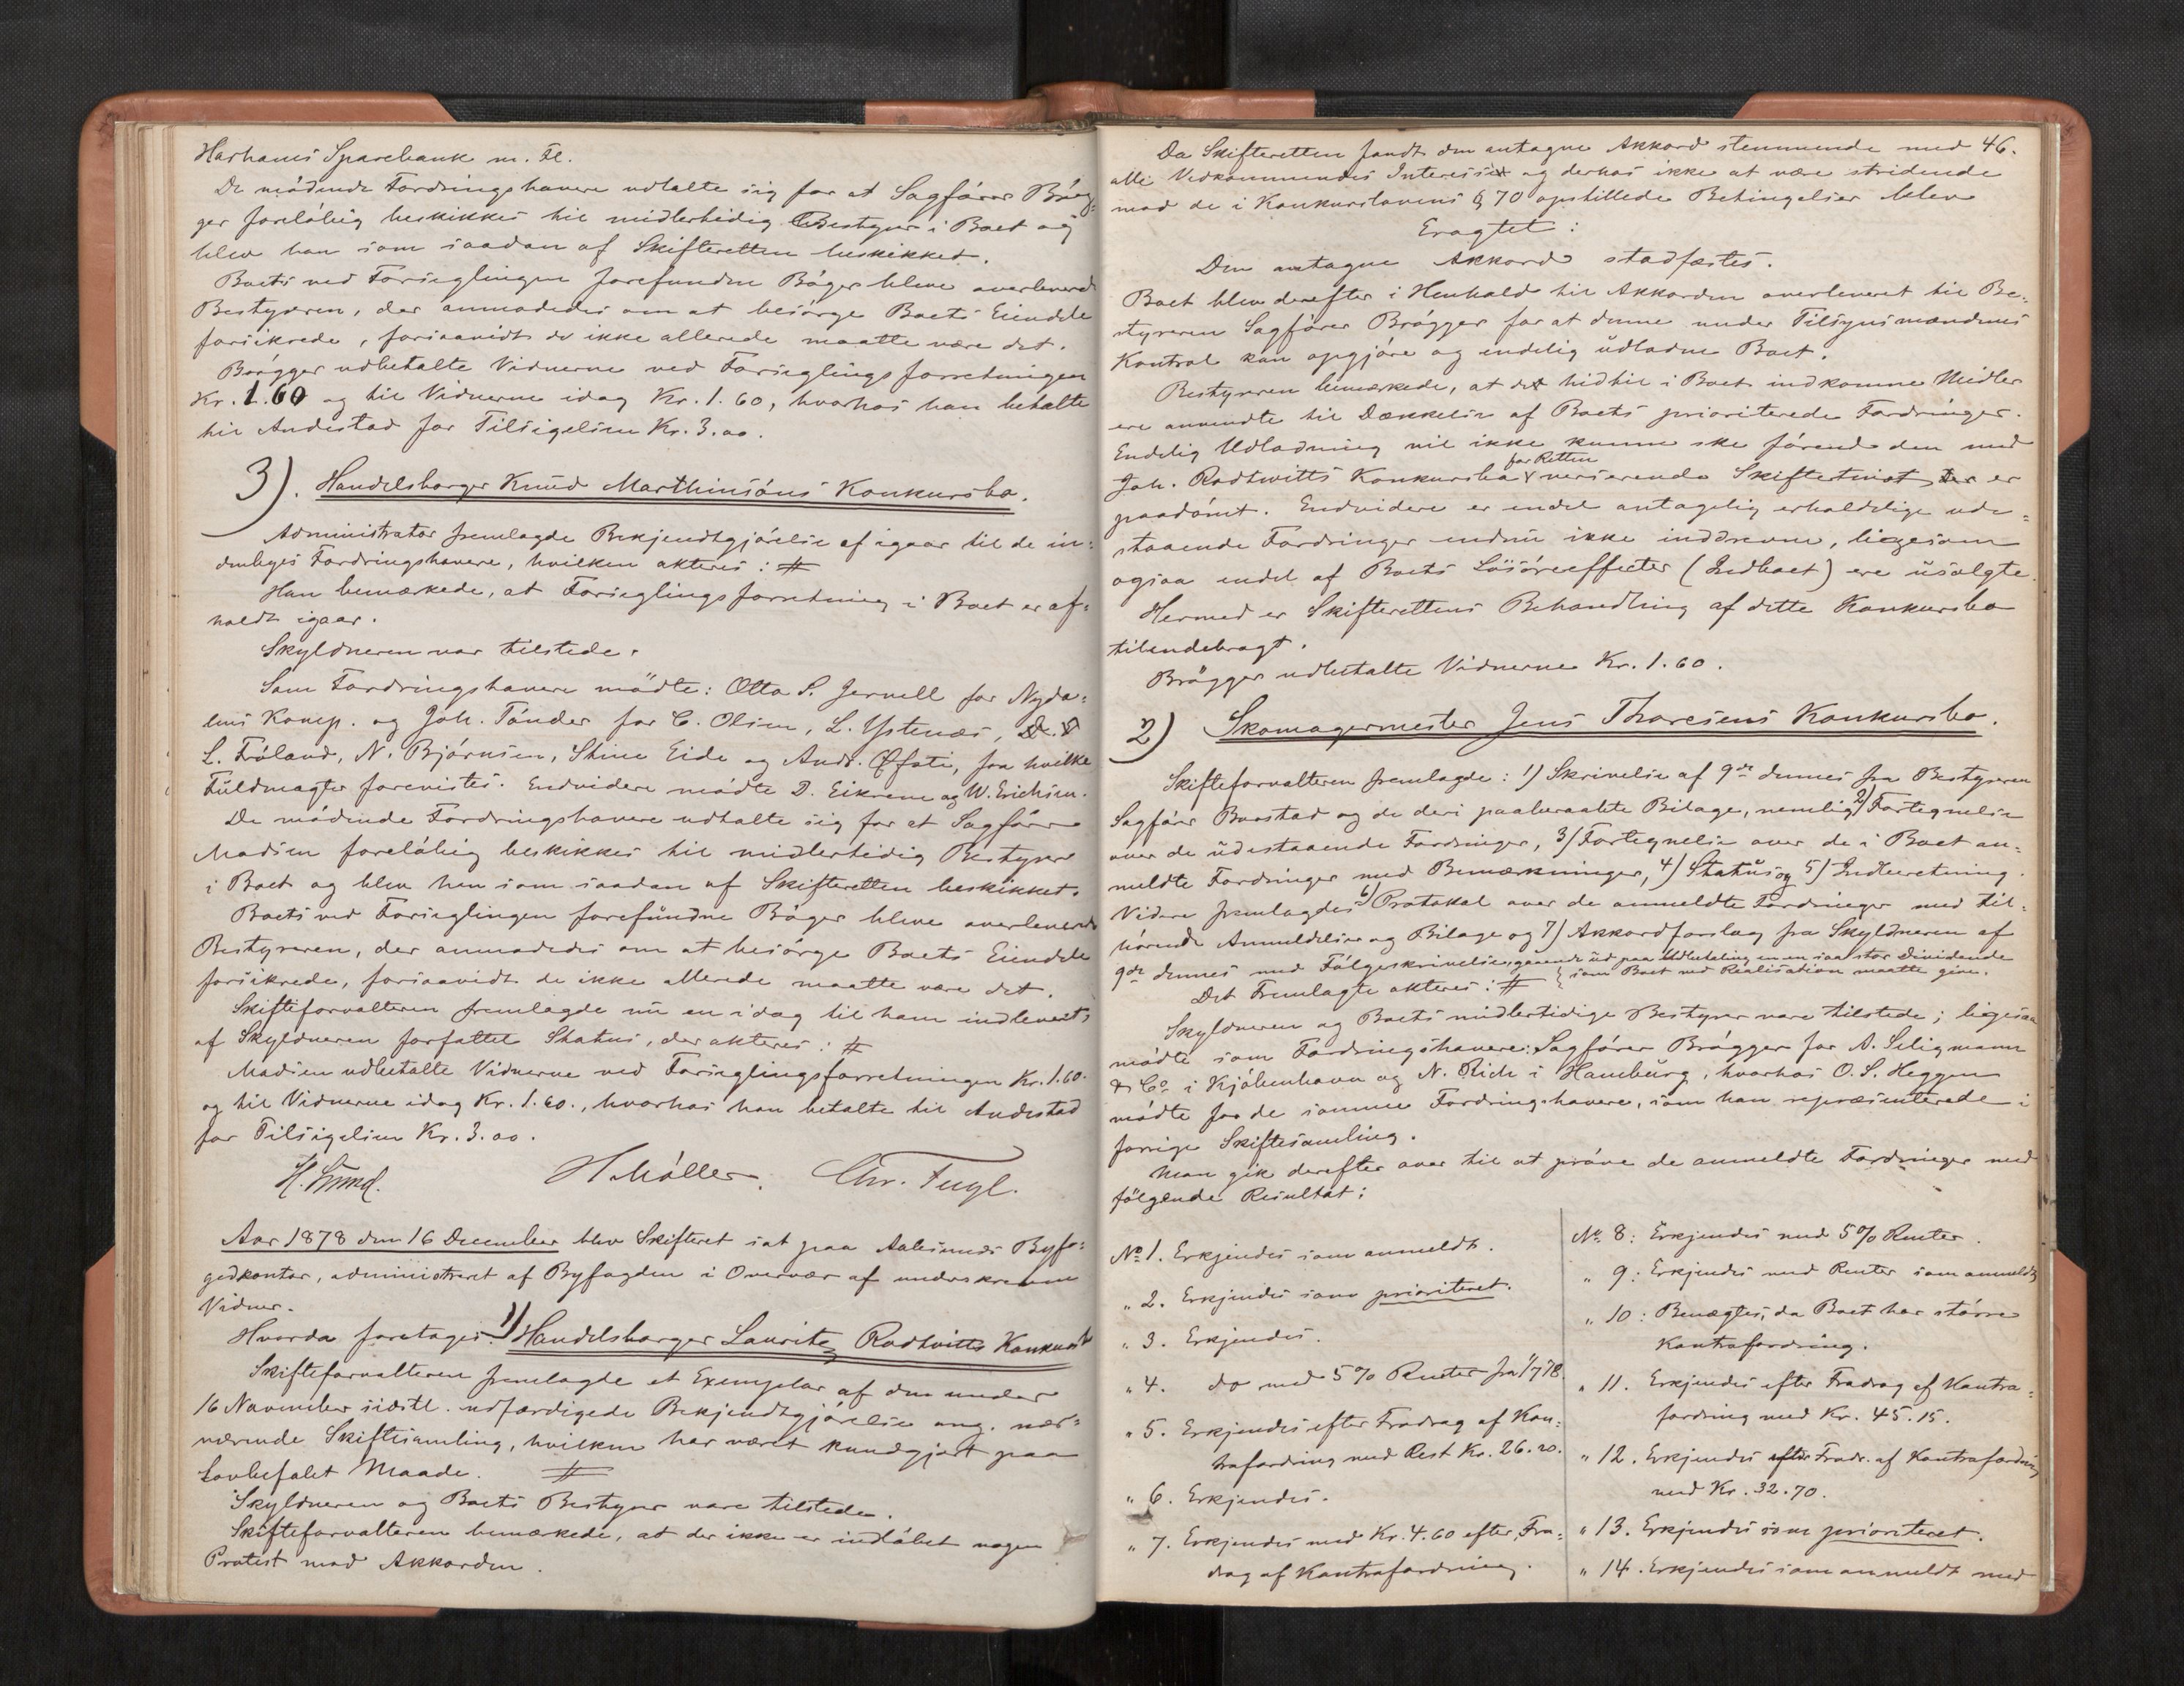 Harhams Sparebank m. Fl.
De mødende Fordringshavere udtalte sig for at Sagfører Brøg=
ger foreløbig beskikkes til midlertidig Bestyrer i Boet og
blev han som saadan af Skifteretten beskikket.
Boets ved Forseglingen forefundne Bøger bleve overleveret
Bestyreren, der anmodedes om at besørge Boets Eiendele
forsikrede, forsaavidt de ikke allerede maatte være det.
Brøgger udbetalte Vidnerne ved Forseglingsforretningen
Kr. 1.60 og til Vidnerne idag Kr. 1.60, hvorhos han betalte
til Andestad for Tilsigelsen Kr. 3.00.
3). Handelsborger Knud Marthinsøns Konkursbo.
Administrator fremlagde Bekjendtgjørelse af igaar til de in=
denbyes Fordringshavere, hvilken akteres: #
Han bemærkede, at Forseglingsforretning i Boet er af=
holdt igaar.
Skyldneren var tilstede.
Som Fordringshavere mødte: Otto S. Jervell for Nyda=
lens Komp. og Joh. Tønder for C. Olsen, L. Ystenæs,
L. Føland, N. Bjørnsen, Stine Eide og Andr. Ofsti, fra hvilke
Fuldmagter forevistes. Endvidere mødte D. Eikrem og W. Erichsen.
De mødende Fordringshavere udtalte sig for at Sagfører
Madsen foreløbig beskikkes til midlertidig Bestyrer
i Boet og blev han som saadan af Skifteretten beskikket.
Boets ved Forseglingen forefundne Bøger bleve overleveret
Bestyreren, der anmodedes om at besørge Boets Eiendele
forsikrede, forsaavidt de ikke allerede maatte være det.
Skifteforvalteren fremlagde nu en idag til ham indleveret,
af Skyldneren forfattet Status, der akteres: #
Madsen udbetalte Vidnerne ved Forseglingsforretningen Kr. 1.60.
og til Vidnerne idag Kr. 1.60., hvorhos han betalte til Andestad
for Tilsigelsen Kr. 3.00.
H. Lund. H. Møller. Chr. Fugl.
Aar 1878 den 16 December blev Skifteret sat paa Aalesunds Byfo=
gedkontor, administreret af Byfogden i Overvær af underskrevne
Vidner.
Hvorda foretoges: 1) Handelsborger Lauritz Rodtvitts Konkursb
Skifteforvalteren fremlagde et Exemplar af den under
16 November sidstl. udfærdigede Bekjendtgjørelse ang. nær=
værende Skiftesamling, hvilken har været kundgjort paa
lovbefalet Maade. #
Skyldneren og Boets Bestyrer vare tilstede.
Skifteforvalteren bemærkede, at der ikke er indløbet nogen
Protest mod Akkorden.
Da Skifteretten fandt den antagne Akkord stemmende med 46.
alle Vedkommendes Interesse og derhos ikke at være stridende
mod de i Konkurslovens § 70 opstillede Betingelser blev
Eragtet:
Den antagne Akkord stadfæstes.
Boet blev derefter i Henhold til Akkorden overleveret til Be=
styreren Sagfører Brøgger for at denne under Tilsynsmandens
Kontrol kan opgjøre og endelig udlodne Boet.
Bestyreren bemærkede, at de hidtil i Boet indkomne Midler
ere anvendte til Dækkelse af Boets prioriterede Fordringer.
Endelig Udlodning vil ikke kunne ske førend den med
Joh. Rodtvitts Konkursbo for Retten verserende Skiftetvist er
paadømt. Endvidere er endel antagelig erholdelige ude=
staaende Fordringer endnu ikke inddrevne, ligesom
ogsaa endel af Boets Løsøreeffecter (Indboet) ere usolgte.
Hermed er Skifterettens Behandling af dette Konkursbo
tilendebragt.
Brøgger udbetalte Vidnerne Kr. 1.60.
2) Skomagermester Jens Thoresens Konkursbo.
Skifteforvalteren fremlagde: 1) Skrivelse af 9de dennes fra Bestyreren
Sagfører Buostad og de deri paaberaabte Bilage, nemlig 2) Fortegnelse
over de udestaaende Fordringer, 3) Fortegnelse over de i Boet an=
meldte Fordringer med Bemærkninger, 4) Status og 5) Indberetning.
Videre fremlagdes 6) Protokol over de anmeldte Fordringer med til=
hørende Anmeldelser og Bilage og 7) Akkordforslag fra Skyldneren af
9de dennes med Følgeskrivelse, gaaende ud paa Udbetaling en en saa stor Dividende
som Boet ved Realisation maatte give.
Det Fremlagte akteres: #
Skyldneren og Boets midlertidige Bestyrer vare tilstede; ligesaa
mødte som Fordringshavere: Sagfører Brøgger for A. Seligmann
& Co i Kjøbenhavn og N. Rich i Hamburg, hvorhos O. S. Heggen
mødte for de samme Fordringshavere, som han repræsenterede i
forrige Skiftesamling.
Man gik derefter over til at prøve de anmeldte Fordringer med
følgende Resultat:
No 1. Erkjendes som anmeldt.
" 2. Erkjendes som prioriteret.
" 3. Erkjendes.
" 4. do med 5% Renter fra 1/7 78.
" 5. Erkjendes efter Fradrag af Kon=
trafordring med Rest Kr. 26.20.
" 6. Erkjendes.
" 7. Erkjendes med Kr. 4.60 efter Fra=
drag af Kontrafordring.
No 8: Erkjendes med 5% Renter.
" 9: Erkjendes med Renter som anmeldt
" 10: Benægtes, da Boet har større
Kontrafordring.
" 11. Erkjendes efter Fradrag af Kontra=
fordring med Kr. 45.15.
" 12. Erkjendes efter Fradr. af Kontrafordring
med Kr. 32.70.
" 13. Erkjendes som prioriteret.
" 14. Erkjendes som anmeldt med